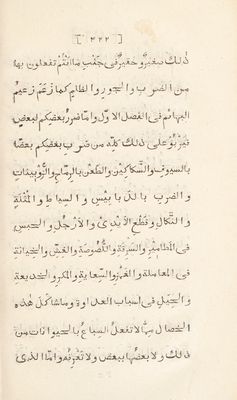 [ ٢٢٢ ]
ذلك صغير وحقير في جنب ما انتم تفعلون بها
من الضرب والجور والظلم كما زعم زعيم
البهائم في الفصل الاول واما ضرر بعضكم لبعض
فيربو على ذلك كله من ضرب بعضكم بعضا
بالسيوف والسكاكين والطعن بالرماح والزوبينات
والضرب بالدبابيس والسياط والمثلة
والنكال وقطع الايدي والارجل والحبس
في المطامير والسرقة واللصوصة والغش والخيانة
في المعاملة والغمز والسعاية والمكر والخديعة
والحيل في اسباب العداوة وما شاكل هذه
الخصال مما لا تفعل السباع بالحيوانات من
ذلك ولا بعضها ببعض ولا تعرفه واما الذى